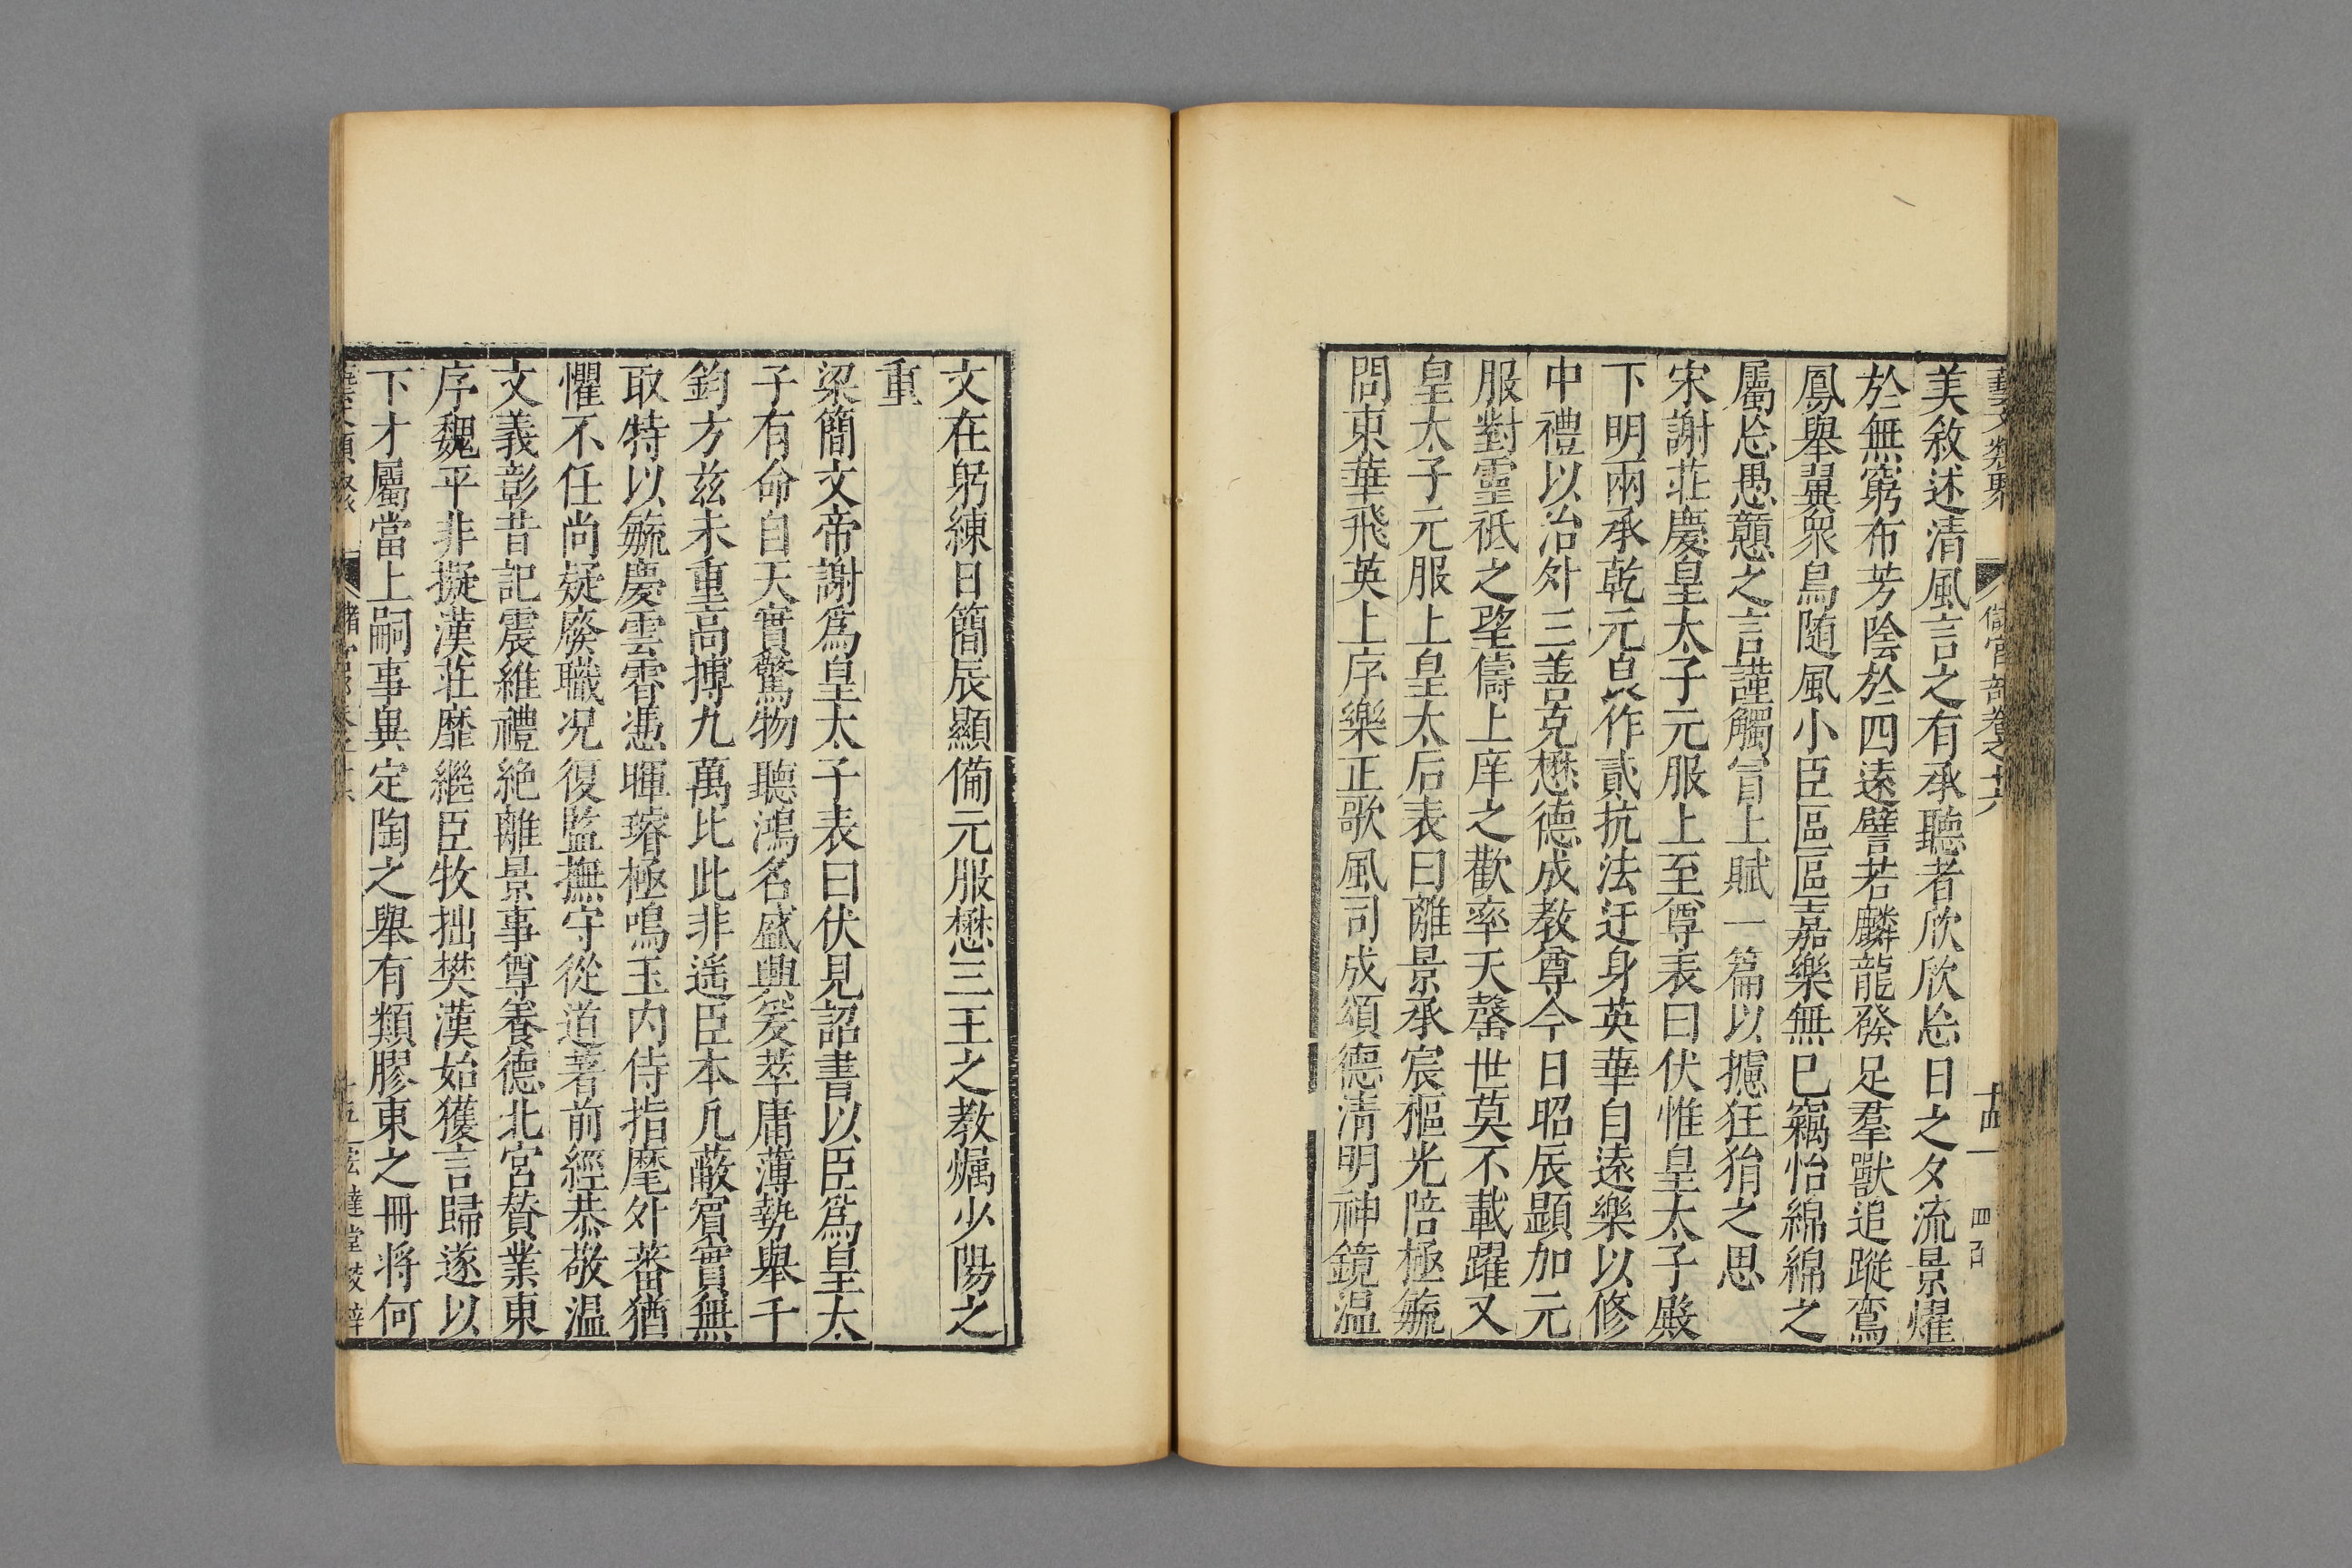 藝文類聚 儲宮部卷之十六 十四 四百
美敘述清風言之有承聽者欣欣忘日之夕流景燿
於無窮布芳陰於四遠譬若麟龍發足羣獸追蹤鸞
鳳舉翼衆鳥随風小臣區區嘉樂無已竊怡綿綿之
屬忘愚戇之言謹觸冒上賦一篇以攄狂狷之思
宋謝莊慶皇太子元服上至尊表曰伏惟皇太子殿
下明兩承乾元良作貳抗法迂身英華自遠樂以修
中禮以治外三善克懋德成教尊今日昭辰顕加元
服對靈祇之望儔上庠之歡率天罄世莫不載躍又
皇太子元服上皇太后表曰離景承宸樞光陪極毓
問東華飛英上序樂正歌風司成頌德清明神鏡温
文在躬練日簡辰顯備元服懋三王之教爥少陽之
重
梁簡文帝謝爲皇太子表曰伏見詔書以臣爲皇太
子有命自天實驚物聽鴻名盛典爰萃庸薄勢舉千
鈞方兹未重高搏九萬比此非遥臣本凡蔽賓實無
取特以毓慶雲霄憑暉璿極鳴玉内侍指麾外蕃猶
懼不任尚疑廢職况復監撫守從道著前經恭敬温
文義彰昔記震維禮絶離景事尊養德北宮賛業東
序魏平非擬漢莊靡繼臣牧拙樊漢始獲言歸遂以
下才屬當上嗣事異定陶之舉有類膠東之冊将何